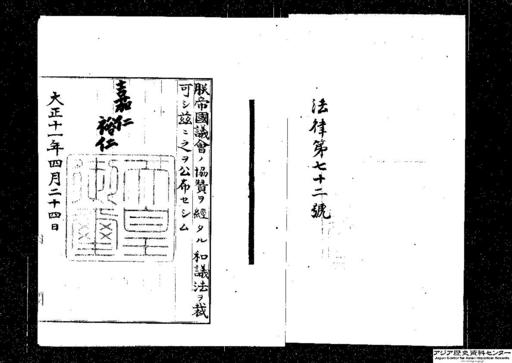 法律第七十二號
朕帝國議會ノ協贊ヲ經タル和議法ヲ裁
可シ茲ニ之ヲ公布セシム
嘉仁
裕仁
天皇御璽
大正十一年四月二十四日
アジア歴史資料センター
Japan Center for Asian Historical Records